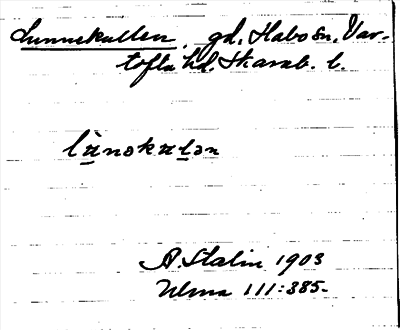 Lunnekullen, gd. Habo sn. Var-
tofta hd. Skarab. l.
lunəkulən
A. Stalin 1903
Ulma 111:385.